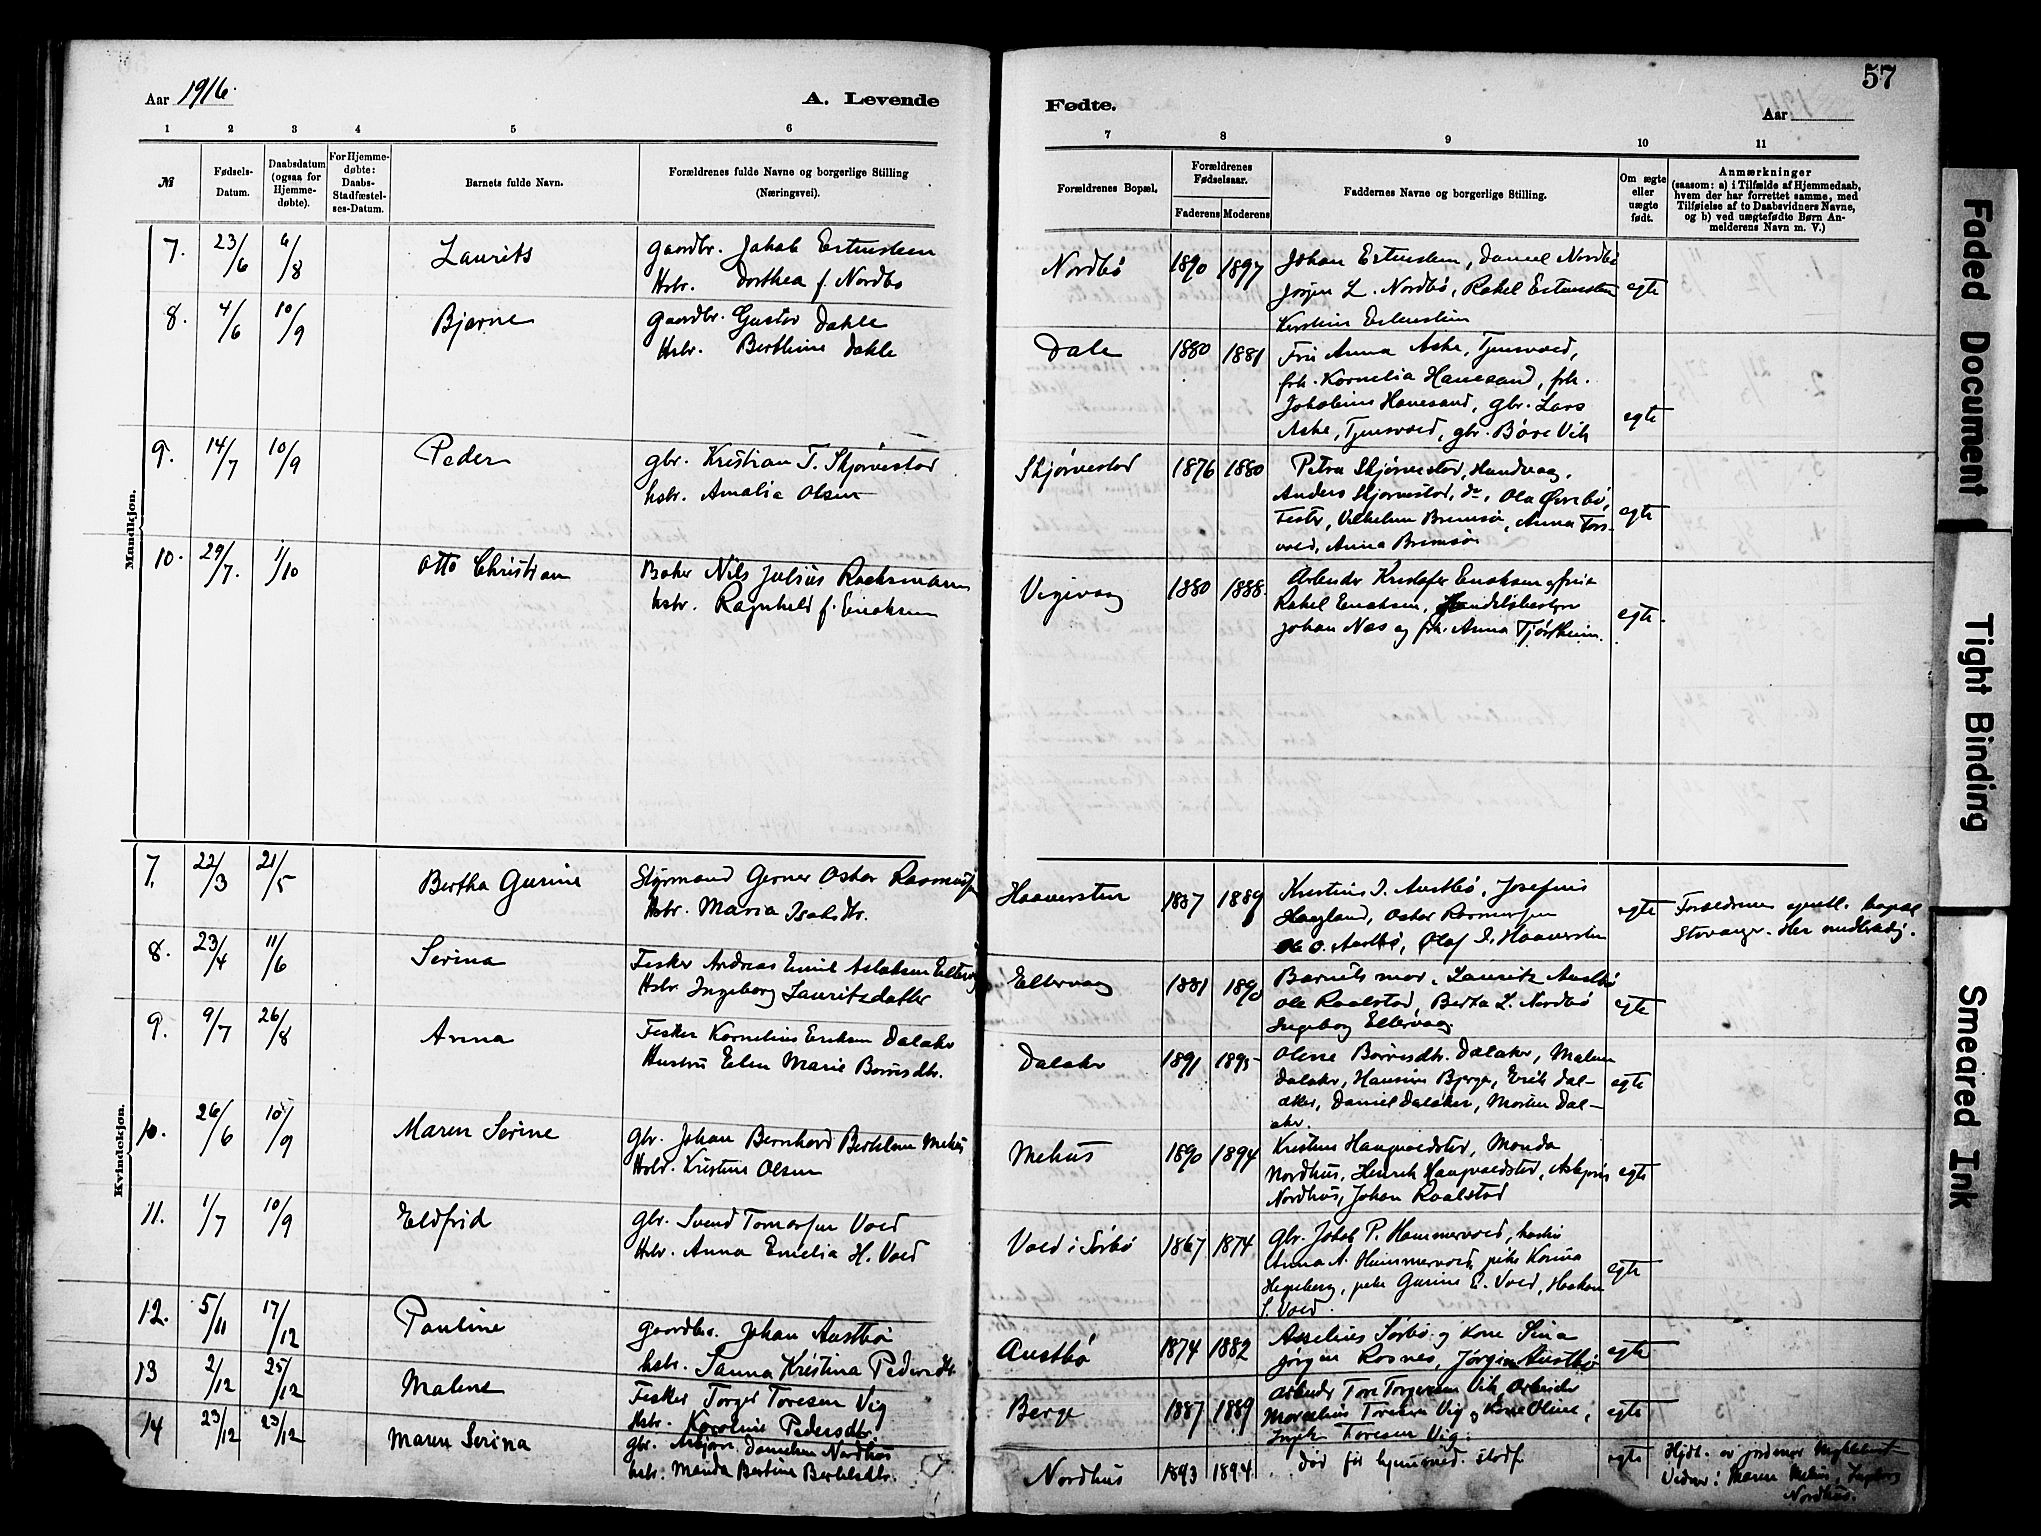 57
Aar 1916.
A. Levende
Fødte.
Aar
1 2 3 4 5 6
7 8 9 10 11
№
Fødsels-Datum.
Daabsdatum (ogsaa for Hjemme-døbte).
For Hjemme-døbte: Daabs-Stadfæstel-ses-Datum.
Barnets fulde Navn.
Forældrenes fulde Navne og borgerlige Stilling
(Næringsvei).
Forældrenes Bopæl.
Forældrenes Fødselsaar.
Faderens Moderens
Faddernes Navne og borgerlige Stilling.
Om ægte eller uægte født.
Anmærkninger
(saasom: a) i Tilfælde af Hjemmedaab,
hvem der har forrettet samme, med
Tilføielse af to Daabsvidners Navne,
og b) ved uægtefødte Børn An-
melderens Navn m. V.)
Mandkjøn.
7. 23/6 6/8 Laurits
Gaardbr. Jakob Estensteen
Hstr. Dorthea f. Nordbø
Nordbø 1890 1897
Johan Estensteen, Daniel Nordbø
Jørgen L. Nordbø, Rakel Estensteen
egte
8. 4/6 10/9 Bjarne
Gaardbr. Gustav Dahle
Hstr. Berthine Dahle
Dale 1880 1881
Fru Anna Aske, Tjensvold,
frk. Kornelia Hanesand, frk.
Hanesand, gbr. Lars
Aske, Tjensvold, gbr. Børe Vik
egte
9. 14/7 10/9 Peder
gbr. Kristian T. Skjørvestad
hstr. Amalia Olsen
Skjørvestad 1876 1880
Petra Skjørvestad, Hundvaag,
Anders Skjørvestad, do, Ola Øvrebø,
Fisker, Vilhelm Bremsø, Anna Tors-
vold, Anna Bremsø
egte
10. 29/7. 1/10 Otto Christian
Baker Nils Julius
hstr. Ragnhild f. Eriksen
1880 1888.
Arbeider Kristofer Eriksen og frue
Rakel Eriksen,
Johan Næs og frk. Anna Tjøstheim.
egte.
Kvindekjøn.
7. 22/3 21/5 Bertha Gurine
Styrmand Gerner Oskar Rasmussen
Hstr. Maria
Haaversten 1887 1889
Kristine I. Austbø, Josefine
Haugland, Oskar Rasmussen
Ole O. Austbø, Olaf I. Haaversten
egte
Forældrenes egentl. bopæl
Stavanger. Her midlertidig.
8. 23/4 11/6 Serina
Fisker Andreas Emil Aslaksen Eltervaag
Hstr Ingeborg Lauritsdatter
Eltervaag 1881 1890
Barnets mor, Lauritz Austbø
Ole Raalstad, Berta L. Nordbø
Ingeborg Eltervaag
egte
9. 9/7 26/8 Anna
Fisker Kornelius Eriksen Dalaker
Hustru Elen Marie Børresdtr.
Dalaker 1891 1895
Olene Børresdtr. Dalaker, Malene
Dalaker, Hansine Bjerge, Erik Dal-
aker, Daniel Dalaker, Morten Dal-
aker.
egte
10. 26/6 10/9 Maren Serine
Gbr. Johan Bernhard Bertelsen Mehus
Hstr. Kristine Olsen
Mehus 1890 1894
Kristine Haugvaldstad, Manda
Nordhus, Henrik Haugvaldstad, Asbjørn
Nordhus, Johan Raalstad
egte
11. 1/7 10/9 Eldfrid
Gbr. Svend Tomassen Vold
Hstr. Anna Emelia H. Vold
Vold i Sørbø 1867 1874
Gbr. Jakob P. Hammervold, hustru
Anna A. Hammervold, pike Korina
Hegeberg, pike Gurine E. Vold, Haakon
S. Vold.
egte
12. 5/11 17/12 Pauline
Gaardbr. Johan Austbø
hstr. Sanna Kristina Pedersdtr
Austbø 1874 1882
Asselius Sørbø og Kone Sina
Jørgen Rosnes, Jørgine Austbø
egte
13 2/12 25/12 Malene
Fisker Torger Toresen Vig
Hstr. Karoline Pedersdtr.
Berge 1887 1889
Arbeider Tore Torgersen Vik, Arbeider
Marselius Toresen Vig og Kone Oline,
Toresen Vig.
egte
14 23/12 23/12 Maren Serina
gbr. Asbjørn Danielsen Nordhus
hstr. Manda Bertine Bertelsdtr.
Nordhus 1893 1894
død før hjemmed. stadf.
egte
Hjdt. av jordmor
Vidner: Maren Mehus, Ingeborg
Nordhus.
Faded Document
Tight Binding
Smeared Ink